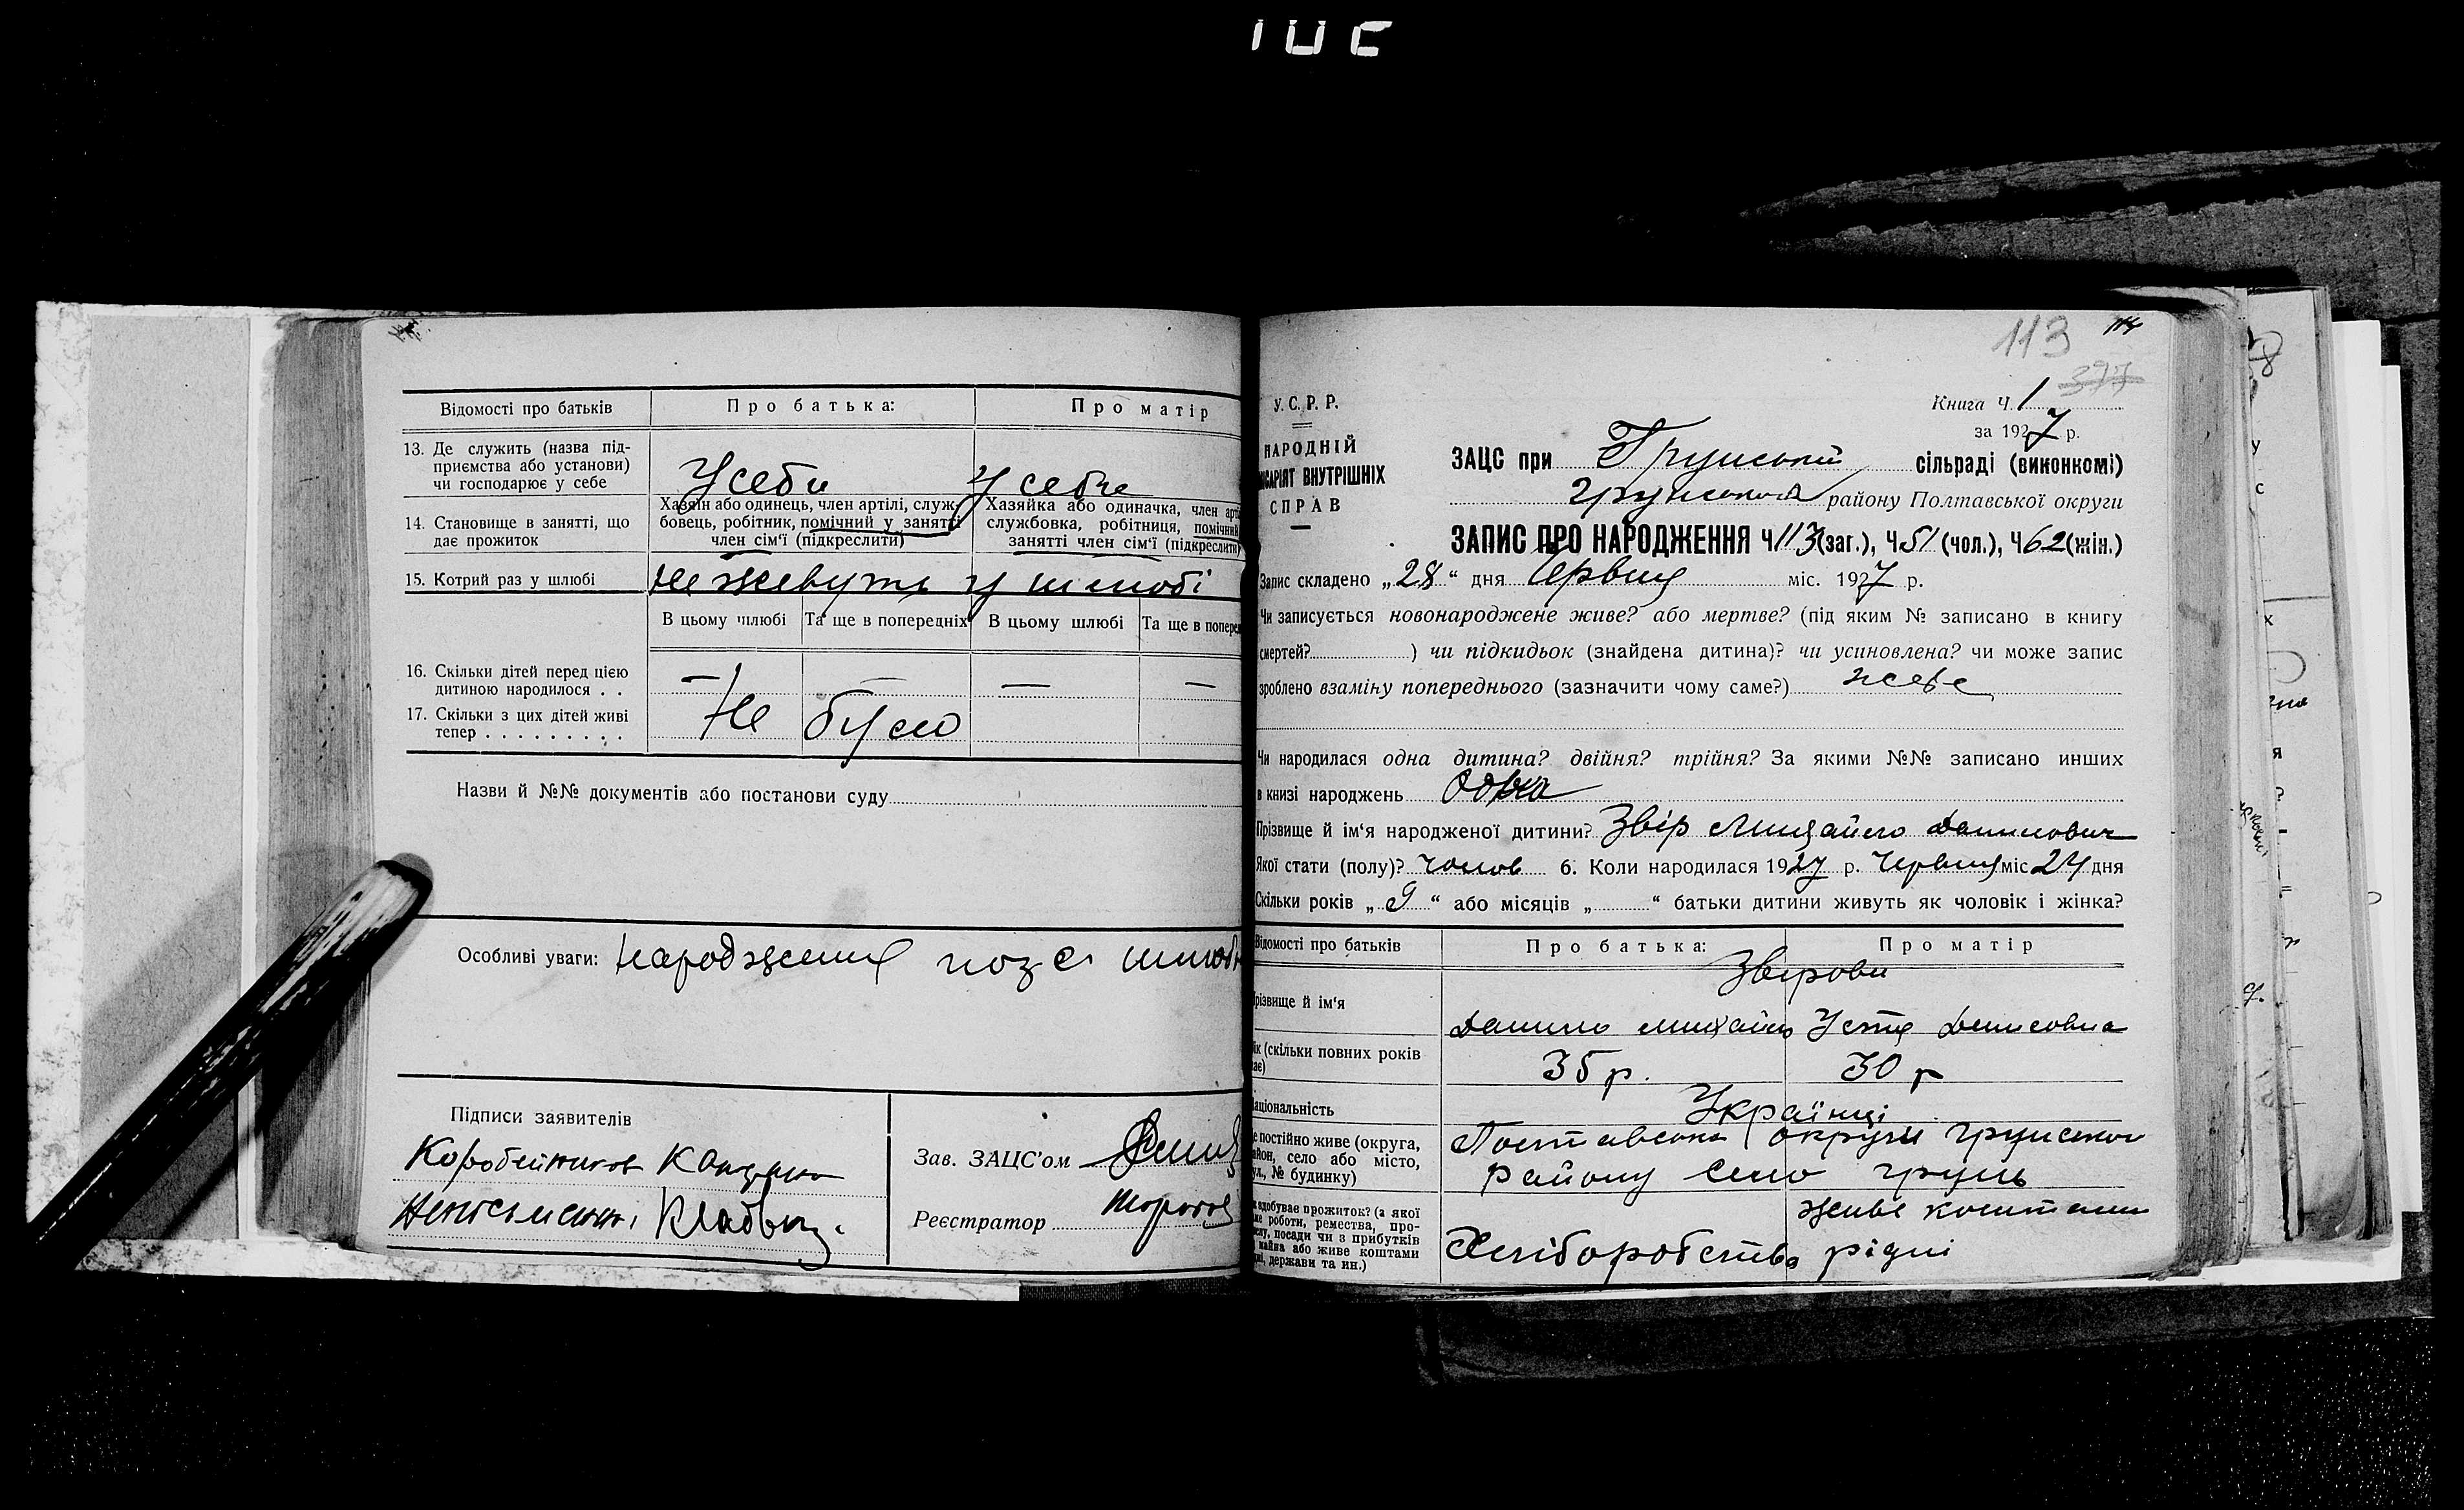 Відомості про батьків
Про батька:
Про матір
13. Де служить (назва під-
приємства або установи)
чи господарює у себе
У себе
У себе
14. Становище в занятті, що
дає прожиток
Хазяїн або одинець, член артілі, служ-
бовець, робітник, помічний у занятті
член сім'ї (підкреслити)
Хазяйка або одиначка, член арті
службовка, робітниця, помічний
занятті член сім'ї (підкреслити)
15. Котрий раз у шлюбі
Не живуть у шлюбі
В цьому шлюбі
Та ще в попередніх
В цьому шлюбі
Та ще в попере
16. Скільки дітей перед цією
дитиною народилося . .
— — — —
17. Скільки з цих дітей живі
тепер . . . . . . . . .
Не було
Назви й №№ документів або постанови суду
Особливі уваги: народження поза шлюб
Підписи заявителів
Зав. ЗАЦС'ом
Реєстратор
113
114
377
У.С.Р.Р.
НАРОДНІЙ
ІСАРІЯТ ВНУТРІШНІХ
СПРАВ
Книга Ч. 1
за 1927 р.
ЗАЦС при Грунській сільраді (виконкомі)
Грунського району Полтавської округи
ЗАПИС ПРО НАРОДЖЕННЯ Ч 113 (заг.), Ч 51 (чол.), Ч 62 (жін.)
Запис складено „28“ дня Червця міс. 1927 р.
Чи записується новонароджене живе? або мертве? (під яким № записано в книгу
смертей? ) чи підкидьок (знайдена дитина)? чи усиновлена? чи може запис
зроблено взаміну попереднього (зазначити чому саме?) живе
Чи народилася одна дитина? двійня? трійня? За якими №№ записано инших
в книзі народжень Одна
Прізвище й ім'я народженої дитини? Звір Михайло Данилович
Якої стати (полу)? чолов 6. Коли народилася 1927 р. Червця міс 24 дня
Скільки років „9“ або місяців „ “ батьки дитини живуть як чоловік і жінка?
Відомості про батьків
Про батька:
Про матір
Звірови
різвище й ім'я
Данило Михайло Устя Денисовна
ік (скільки повних років
ає)
35 р.
30 р
аціональність
Українці
е постійно живе (округа,
айон, село або місто,
ул., № будинку)
Полтавська округи Грунського
району село Грунь
здобуває прожиток? (з якої
ме роботи, ремества, про-
ислу, посади чи з прибутків
майна або живе коштами
ідні, держави та ин.)
Хліборобство
живе коштами
рідні